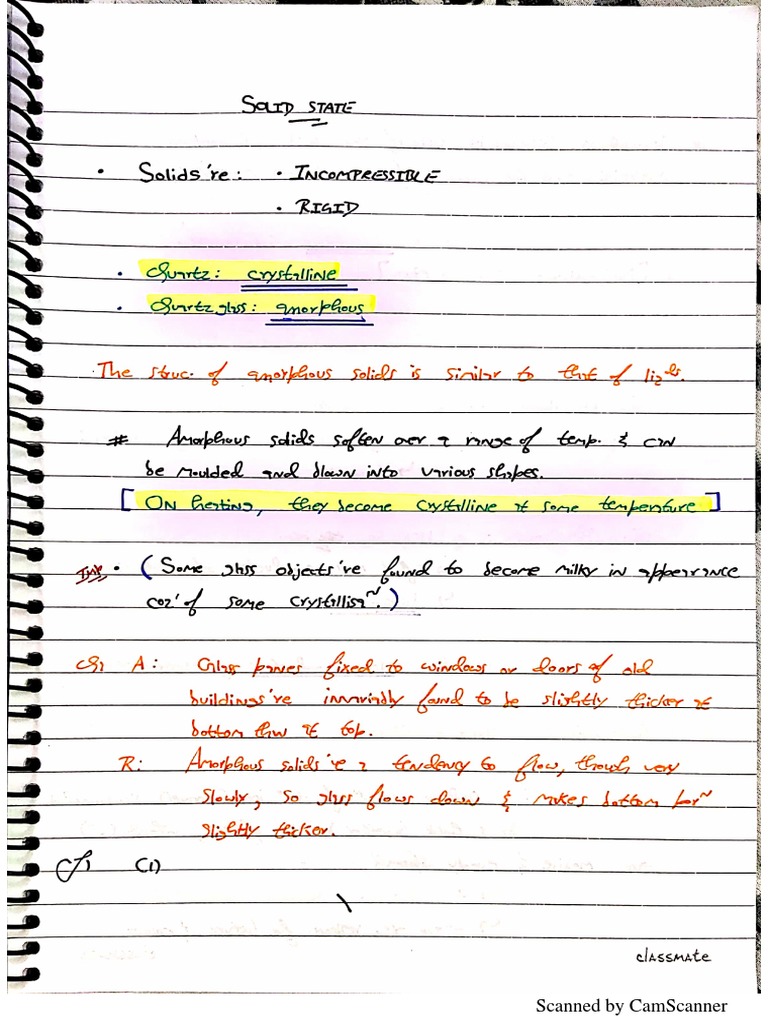 SOLID STATE
• Solids 're: • INCOMPRESSIBLE
• RIGID
• Quartz: crystalline
• Quartz glass: amorphous
The struc. of amorphous solids is similar to that of liqds.
# Amorphous solids soften over a range of temp. & can
be moulded and blown into various shapes.
[On heating, they become crystalline at some temperature]
Imp • (Some glass objects 're found to become milky in appearance
coz' of some crystallisn.)
Q) A: Glass panes fixed to windows or doors of old
buildings 're invariably found to be slightly thicker at
bottom than at top.
R: Amorphous solids 're a tendency to flow, though very
slowly, so glass flows down & makes bottom porn
slightly thicker.
(1)
classmate
Scanned by CamScanner